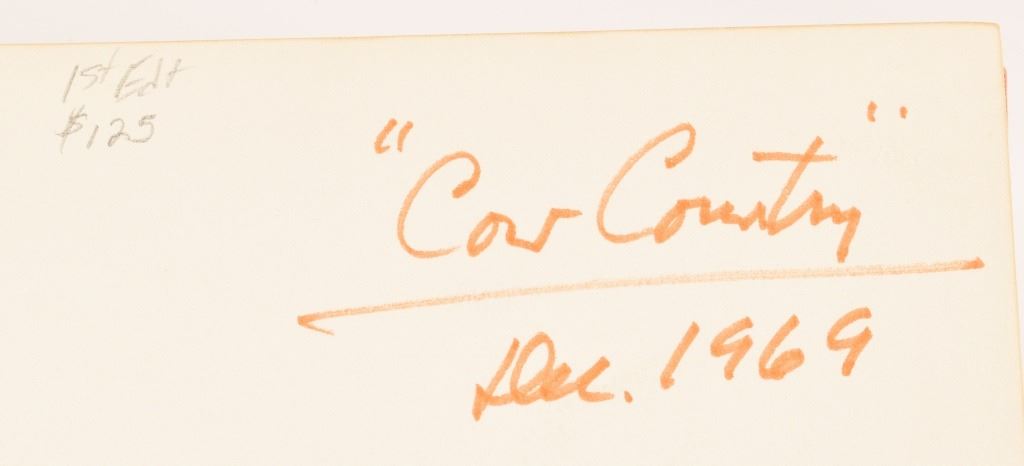 1st Edt
$125
"Cow Country"
Dec. 1969